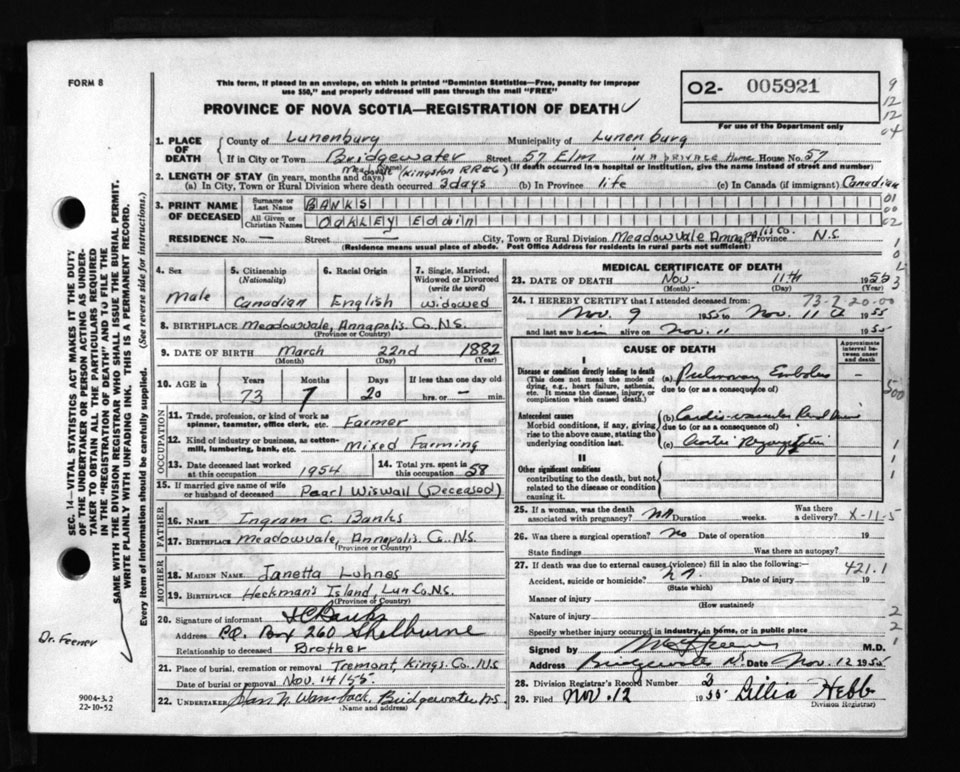 FORM 8
This form, if placed in an envelope, on which is printed "Dominion Statistics—Free, penalty for improper
use $50," and properly addressed will pass through the mail "FREE"
PROVINCE OF NOVA SCOTIA—REGISTRATION OF DEATH
O2- 005921
For use of the Department only
9
12
12
04
1. PLACE OF DEATH
County of Lunenburg Municipality of Lunenburg
If in City or Town Bridgewater Street 57 Elm IN A PRIVATE Home House No. 57
(If death occurred in a hospital or institution, give the name instead of street and number)
Meadowvale (Kingston RR#6)
2. LENGTH OF STAY (in years, months and days)
(a) In City, Town or Rural Division where death occurred 3 days (b) In Province life (c) In Canada (if immigrant) Canadian
3. PRINT NAME OF DECEASED
Surname or Last Name BANKS
All Given or Christian Names OAKLEY Edwin
01
00
02
RESIDENCE No. — Street — City, Town or Rural Division Meadowvale Annapolis Co. Province N.S.
(Residence means usual place of abode. Post Office Address for residents in rural parts not sufficient)
4. Sex
Male
5. Citizenship (Nationality)
Canadian
6. Racial Origin
English
7. Single, Married, Widowed or Divorced (write the word)
widowed
8. BIRTHPLACE Meadowvale, Annapolis. Co. N.S.
(Province or Country)
9. DATE OF BIRTH March 22nd 1882
(Month) (Day) (Year)
10. AGE in
Years Months Days If less than one day old
73 7 20 hrs. or — min.
OCCUPATION
11. Trade, profession, or kind of work as spinner, teamster, office clerk, etc. Farmer
12. Kind of industry or business, as cotton-mill, lumbering, bank, etc. Mixed Farming
13. Date deceased last worked at this occupation 1954
14. Total yrs. spent in this occupation 58
15. If married give name of wife or husband of deceased Pearl Wiswall (Deceased)
FATHER
16. NAME Ingram C. Banks
17. BIRTHPLACE Meadowvale, Annapolis. Co. N.S.
(Province or Country)
MOTHER
18. MAIDEN NAME Janetta Lohnes
19. BIRTHPLACE Heckman's Island, Lun Co. N.S.
(Province or Country)
20. Signature of informant I C Banks
Address P.O. Box 260 Shelburne
Relationship to deceased Brother
21. Place of burial, cremation or removal Tremont Kings. Co. N.S
Date of burial or removal Nov. 14/55.
22. UNDERTAKER Bridgewater, N.S.
(Name and address)
MEDICAL CERTIFICATE OF DEATH
23. DATE OF DEATH Nov 11th 1955
(Month) (Day) (Year)
24. I HEREBY CERTIFY that I attended deceased from: 73-7 20-00
Nov. 9 1955 to Nov. 11 1955
and last saw him alive on Nov. 11 1955
CAUSE OF DEATH
Approximate interval between onset and death
I
Disease or condition directly leading to death
(This does not mean the mode of dying, e.g., heart failure, asthenia, etc. It means the disease, injury, or complication which caused death.)
(a) Pulmonary Embolus —
due to (or as a consequence of)
500
Antecedent causes
Morbid conditions, if any, giving rise to the above cause, stating the underlying condition last.
(b) Cardio-vascular Renal Disease
due to (or as a consequence of)
(c) Aortic Regurgitation
II
Other significant conditions
contributing to the death, but not related to the disease or condition causing it.
25. If a woman, was the death associated with pregnancy? Duration weeks. Was there a delivery? X-11-5
26. Was there a surgical operation? No Date of operation 19
State findings Was there an autopsy?
27. If death was due to external causes (violence) fill in also the following: 421.1
Accident, suicide or homicide? Date of injury 19
(State which)
Manner of injury
(How sustained)
Nature of injury
Specify whether injury occurred in industry, in home, or in public place
2
2
1
Signed by M.D.
Address Bridgewater N. Date Nov. 12 1955
28. Division Registrar's Record Number 3
29. Filed Nov. 12 1955 Lillia Hebb
Division Registrar
SEC. 14—VITAL STATISTICS ACT MAKES IT THE DUTY
OF THE UNDERTAKER OR PERSON ACTING AS UNDER-
TAKER TO OBTAIN ALL THE PARTICULARS REQUIRED
IN THE "REGISTRATION OF DEATH" AND TO FILE THE
SAME WITH THE DIVISION REGISTRAR WHO SHALL ISSUE THE BURIAL PERMIT.
WRITE PLAINLY WITH UNFADING INK. THIS IS A PERMANENT RECORD.
Every item of information should be carefully supplied. (See reverse side for instructions.)
Dr. Feener
9004-3.2
22-10-52